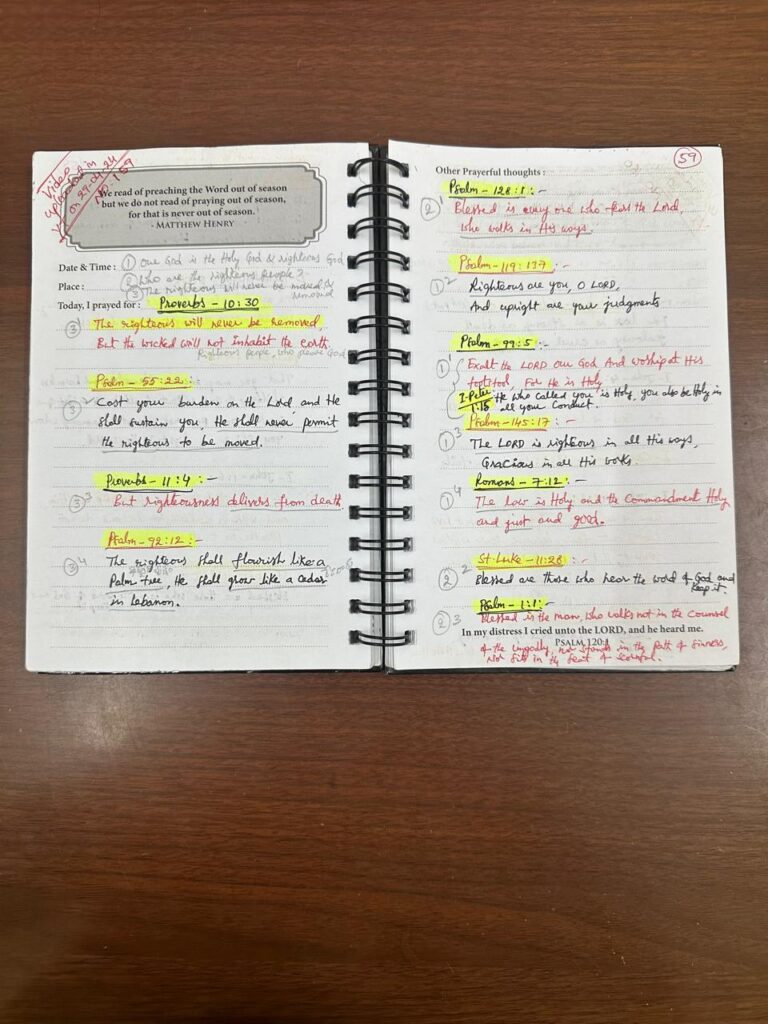 Video
uploaded in
on 29-04-24
No - 159
We read of preaching the Word out of season
but we do not read of praying out of season,
for that is never out of season.
- MATTHEW HENRY
Date & Time : ① Our God is the Holy God & righteous God
Place : ② Who are the righteous people ?
③ The righteous will never be moved &
removed
Today, I prayed for : Proverbs - 10:30
③ 1 The righteous will never be removed,
But the wicked will not inhabit the earth.
Righteous people, who God
Psalm - 55:22 :-
③ 2 Cast your burden on the Lord, and He
shall sustain you, He shall never permit
the righteous to be moved.
Proverbs - 11:4 :-
③ 3 But righteousness delivers from death.
Psalm - 92:12 :-
③ 4 The righteous shall flourish like a
Palm tree, He shall grow like a cedar
in Lebanon.
59
Other Prayerful thoughts :
Psalm - 128:1 :-
② 1 Blessed is every one who fears the Lord,
who walks in His ways.
Psalm - 119:137 :-
① 2 Righteous are you, O LORD,
And upright are your judgments
Psalm - 99:5 :-
① 1 Exalt the LORD our God And worship at His
footstool, For He is Holy
I-Peter 1:15 He who called you is Holy, you also be Holy in
all your conduct.
Psalm - 145:17 :-
① 3 The LORD is righteous in all His ways,
Gracious in all His works.
Romans - 7:12 :-
① 4 The law is Holy and the Commandment Holy
and just and good.
St. Luke - 11:28 :-
② 2 Blessed are those who hear the word of God and
keep it.
Psalm - 1:1 :-
② 3 Blessed is the man, Who walks not in the counsel
In my distress I cried unto the LORD, and he heard me.
PSALM 120:1
of the ungodly, nor stands in the path of sinners,
Nor sits in the seat of scornful.